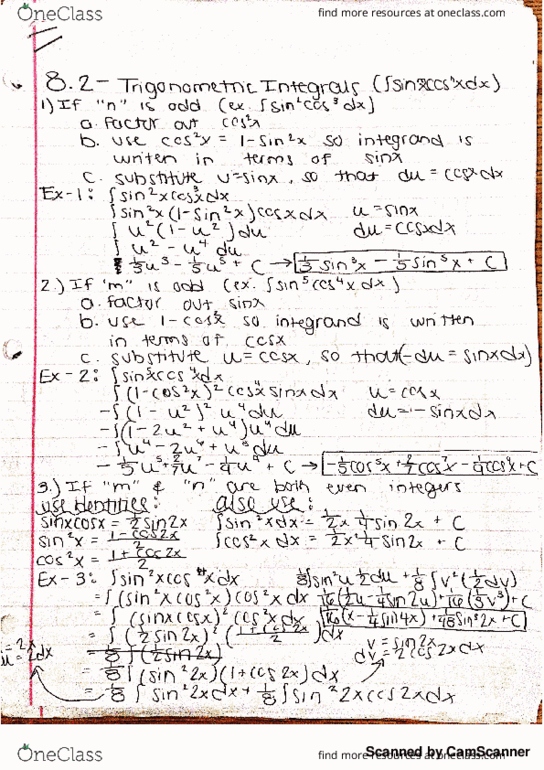 OneClass
find more resources at oneclass.com
8.2 - Trigonometric Integrals (∫sin x cos x dx)
1) If "n" is odd (ex. ∫sin²cos³dx)
a. factor out cos²x
b. use cos²x = 1-sin²x so integrand is
written in terms of sinx
c. substitute u=sinx, so that du = cosxdx
Ex-1: ∫sin²xcos³xdx
∫sin²x(1-sin²x)cosxdx u=sinx
∫u²(1-u²)du du=cosxdx
∫u² - u⁴ du
⅓u³ - ⅕u⁵ + C → ⅓sin³x - ⅕sin⁵x + C
2.) If "m" is odd (ex. ∫sin⁵cos⁴xdx)
a. factor out sinx
b. use 1-cos²x so integrand is written
in terms of cosx
c. substitute u=cosx, so that (-du = sinxdx)
Ex-2: ∫sin⁵xcos⁴xdx
∫(1-cos²x)² cos⁴x sinxdx u=cosx
-∫(1-u²)² u⁴du du=-sinxdx
-∫(1-2u²+u⁴)u⁴du
-∫u⁴-2u⁴+u⁸du
-⅕u⁵+2/7u⁷-¼u⁹+C → -⅕cos⁵x+2/7cos⁷x-¼cos⁹x+C
3.) If "m" & "n" are both even integers
use identities: also use:
sinxcosx = ½sin2x ∫sin²xdx = ½x ¼sin2x + C
sin²x = (1-cos2x)/2 ∫cos²xdx = ½x ¼sin2x + C
cos²x = (1+cos2x)/2
Ex-3: ∫sin²xcos⁴xdx ⅛∫sin²u ½du + ⅛∫v²(½dv)
= ∫(sin²xcos²x)cos²xdx 1/16(½u-¼sin2u)+1/16(⅓v³)+C
= ∫(sinxcosx)²cos²xdx 1/16(x-¼sin4x)+1/48sin³2x+C
= ∫(½sin2x)²((1+cos2x)/2)dx v=sin2x
= ⅛∫(½sin2x) dv=½cos2xdx
= ⅛∫(sin²2x)(1+cos2x)dx
= ⅛∫sin²2xdx + ⅛∫sin²2xcos2xdx
OneClass
find more resources at oneclass.com
Scanned by CamScanner